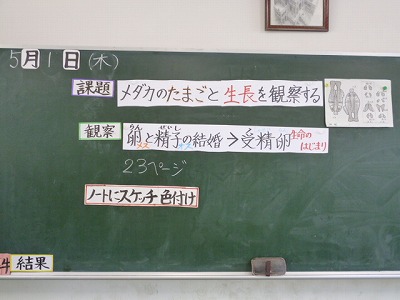 5月1日(木)
課題 メダカのたまごと生長を観察する
観察 卵と精子の結婚→受精卵 生命のはじまり
らん せいし
メス オス
23ページ
ノートにスケッチ色付け
結果